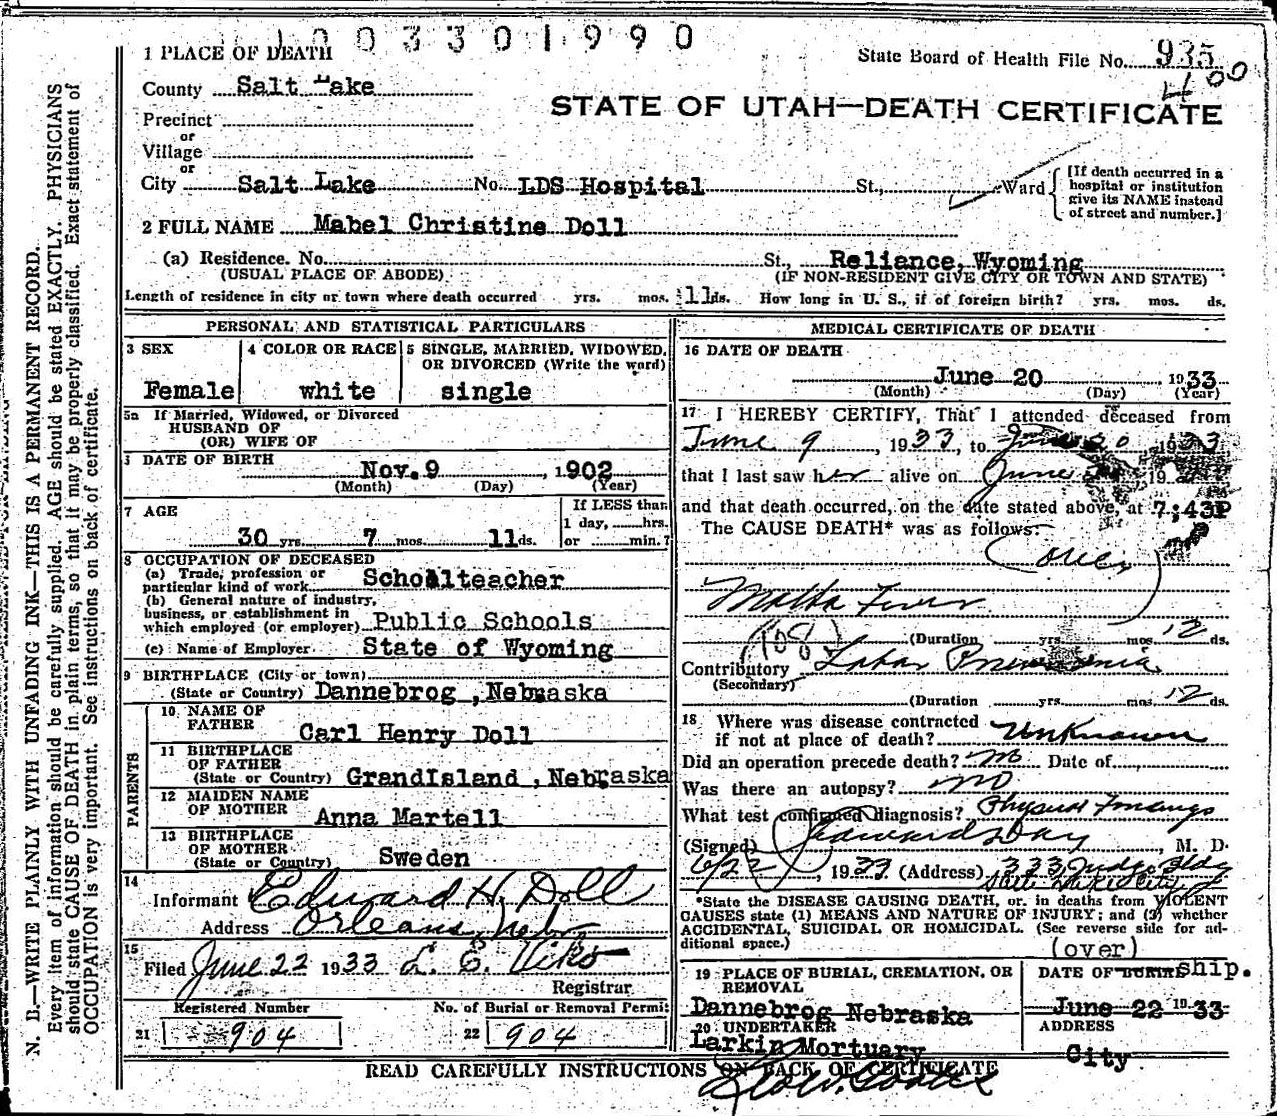 1003301990
1 PLACE OF DEATH
State Board of Health File No. 935
400
County Salt Lake
STATE OF UTAH—DEATH CERTIFICATE
Precinct
or
Village
or
City Salt Lake No. LDS Hospital St., Ward
[If death occurred in a hospital or institution give its NAME instead of street and number.]
2 FULL NAME Mabel Christine Doll
(a) Residence. No. St., Reliance, Wyoming
(USUAL PLACE OF ABODE) (IF NON-RESIDENT GIVE CITY OR TOWN AND STATE)
Length of residence in city or town where death occurred yrs. mos. 11ds. How long in U. S., if of foreign birth? yrs. mos. ds.
PERSONAL AND STATISTICAL PARTICULARS
3 SEX
Female
4 COLOR OR RACE
white
5 SINGLE, MARRIED, WIDOWED, OR DIVORCED (Write the word)
single
5a If Married, Widowed, or Divorced
HUSBAND OF
(OR) WIFE OF
DATE OF BIRTH
Nov. 9, 1902
(Month) (Day) (Year)
7 AGE
30 yrs. 7 mos. 11ds.
If LESS than
1 day, hrs.
or min.?
8 OCCUPATION OF DECEASED
(a) Trade, profession or
particular kind of work Schoolteacher
(b) General nature of industry,
business, or establishment in
which employed (or employer) Public Schools
(c) Name of Employer State of Wyoming
9 BIRTHPLACE (City or town)
(State or Country) Dannebrog, Nebraska
PARENTS
10 NAME OF
FATHER Carl Henry Doll
11 BIRTHPLACE
OF FATHER
(State or Country) GrandIsland, Nebraska
12 MAIDEN NAME
OF MOTHER Anna Martell
13 BIRTHPLACE
OF MOTHER
(State or Country) Sweden
14
Informant Edward H. Doll
Address Orleans, Nebr.
15
Filed June 22 1933 L. E. Viko
Registrar
Registered Number
21 904
No. of Burial or Removal Permit
22 904
MEDICAL CERTIFICATE OF DEATH
16 DATE OF DEATH
June 20 1933
(Month) (Day) (Year)
17 I HEREBY CERTIFY, That I attended deceased from
June 9, 1933, to June 20 1933
that I last saw her alive on June 19
and that death occurred, on the date stated above, at 7:43P
The CAUSE DEATH* was as follows:
(over)
Malta Fever
(108)
(Duration yrs. mos. 12 ds.
Contributory Lobar Pneumonia
(Secondary)
(Duration yrs. mos. 12 ds.
18 Where was disease contracted
if not at place of death? Unknown
Did an operation precede death? no Date of
Was there an autopsy? no
What test confirmed diagnosis? Physical Findings
(Signed) Edward S Day, M. D.
6/22, 1933 (Address) 333 Judge Bldg
Salt Lake City
*State the DISEASE CAUSING DEATH, or, in deaths from VIOLENT
CAUSES state (1) MEANS AND NATURE OF INJURY; and (2) whether
ACCIDENTAL, SUICIDAL OR HOMICIDAL. (See reverse side for ad-
ditional space.)
(over)
19 PLACE OF BURIAL, CREMATION, OR
REMOVAL
Dannebrog Nebraska
DATE OF BURIAL ship.
June 22 1933
20 UNDERTAKER
Larkin Mortuary
ADDRESS
City
READ CAREFULLY INSTRUCTIONS ON BACK OF CERTIFICATE
N. B.—WRITE PLAINLY WITH UNFADING INK—THIS IS A PERMANENT RECORD.
Every item of information should be carefully supplied. AGE should be stated EXACTLY. PHYSICIANS
should state CAUSE OF DEATH in plain terms, so that it may be properly classified. Exact statement of
OCCUPATION is very important. See instructions on back of certificate.